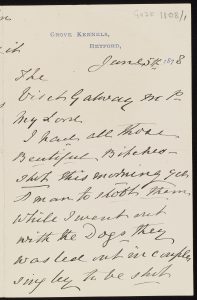 GROVE KENNELS,
RETFORD,
June 5th 1878
The
Visct Galway M P
My Lord
I had all those
Beautiful Bitches
shot this morning got
A man to shoot them
while I went out
with the Dogs they
was lead out in couples
singley to be shot